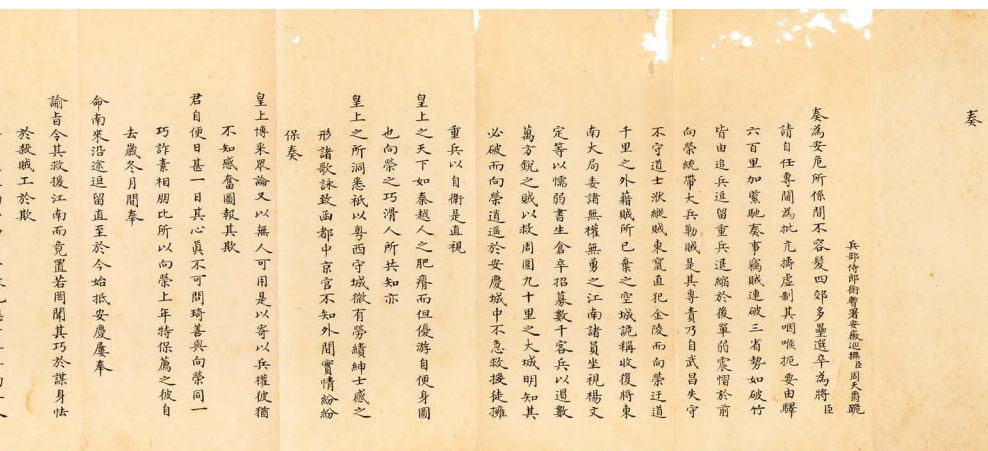 奏
兵部侍郎銜暫署安徽巡撫臣周天爵跪
奏為安危所係間不容髮四郊多壘選卒為將臣
請自任專閫為批亢擣虛制其咽喉扼要由驛
六百里加緊馳奏事竊賊連破三省勢如破竹
皆由追兵逗留重兵退縮於後單弱震慴於前
向榮統帶大兵勦賊是其專責乃自武昌失守
不守道士洑縱賊東竄直犯金陵而向榮迂道
千里之外藉賊所已棄之空城詭稱收復將東
南大局委諸無權無勇之江南諸員坐視楊文
定等以懦弱書生倉卒招募數千客兵以遏數
萬方銳之賊以救周圍九十里之大城明知其
必破而向榮逍遥於安慶城中不急救援徒擁
重兵以自衛是直視
皇上之天下如秦越人之肥瘠而但優游自便身圖
也向榮之巧滑人所共知亦
皇上之所洞悉祇以粤西守城微有勞績紳士感之
形諸歌詠致函都中京官不知外間實情紛紛
保奏
皇上博采眾論又以無人可用是以寄以兵權彼猶
不知感奮圖報其欺
君自便日甚一日其心真不可問琦善與向榮同一
巧詐素相朋比所以向榮上年特保薦之彼自
去歲冬月間奉
命南來沿途逗留直至於今始抵安慶屢奉
諭旨令其救援江南而竟置若罔聞其巧於謀身怯
於殺賊工於欺